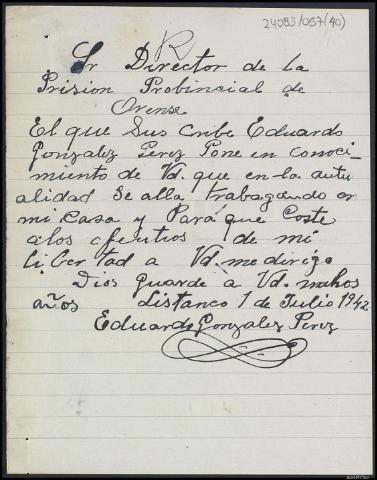 24083/057(40)
R
Sr Director de la
Prision Probincial de
Orense
El que Sus Cribe Eduardo
Gonzalez Perez Pone en conoci-
miento de Vd. que en la autu
alidad Se alla trabagando en
mi Casa y Para que Coste
a los efeutios de mi
liCer tad a Vd. me dirigo
Dios guarde a Vd. muhos
años Listanco 1 de Julio 1942
Eduardo Gonzalez Perez